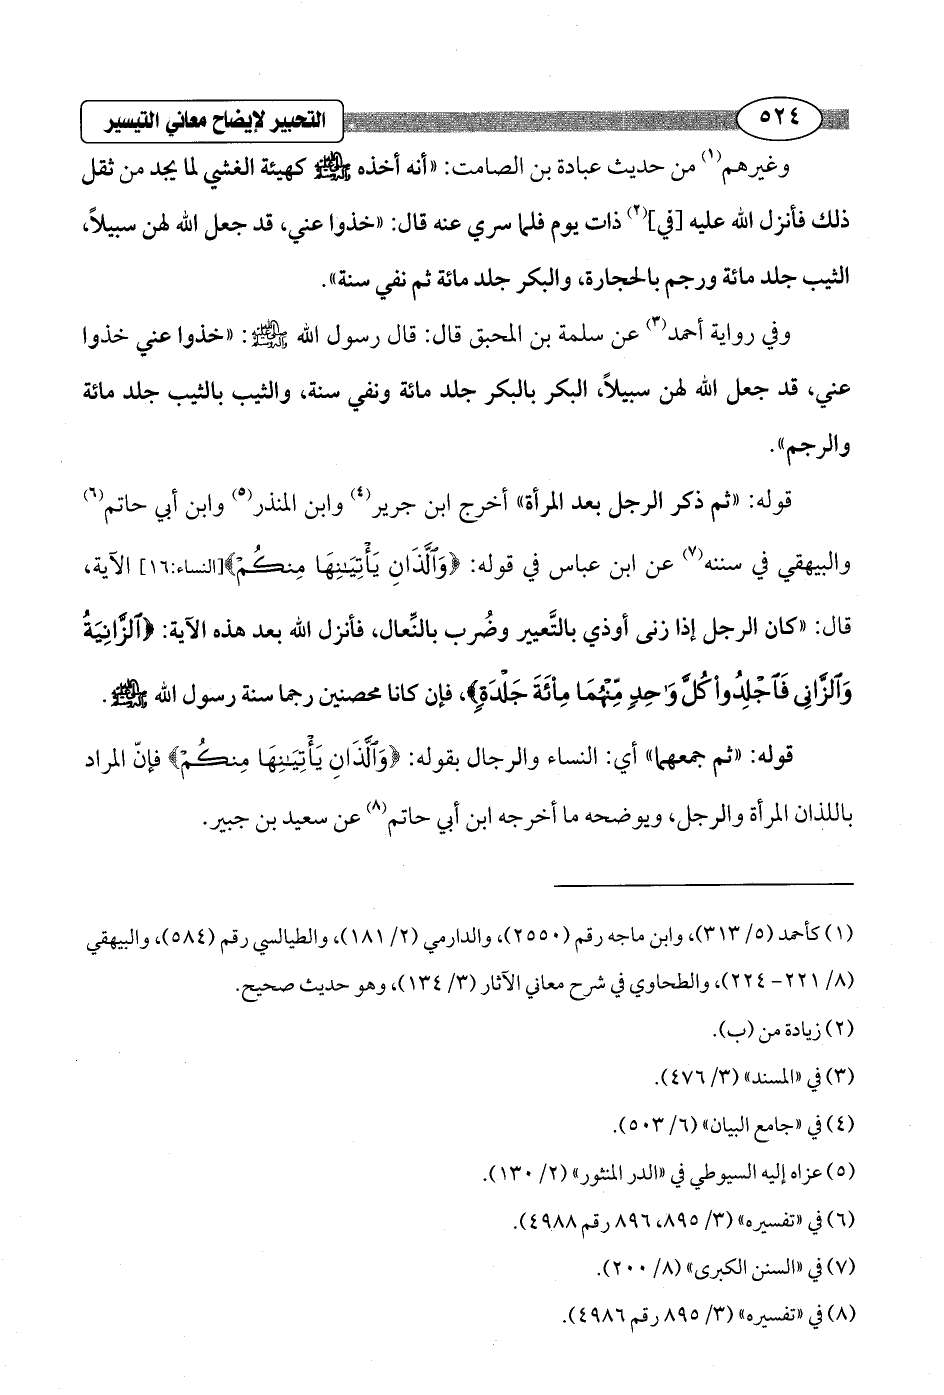 ٥٢٤
التحبير لإيضاح معاني التيسير
وغيرهم(١) من حديث عبادة بن الصامت: «أنه أخذه ﷺ كهيئة الغشي لما يجد من ثقل
ذلك فأنزل الله عليه [في](٢) ذات يوم فلما سري عنه قال: «خذوا عني، قد جعل الله لهن سبيلاً،
الثيب جلد مائة ورجم بالحجارة، والبكر جلد مائة ثم نفي سنة».
وفي رواية أحمد(٣) عن سلمة بن المحبق قال: قال رسول الله ﷺ: «خذوا عني خذوا
عني، قد جعل الله لهن سبيلاً، البكر بالبكر جلد مائة ونفي سنة، والثيب بالثيب جلد مائة
والرجم».
قوله: «ثم ذكر الرجل بعد المرأة» أخرج ابن جرير(٤) وابن المنذر(٥) وابن أبي حاتم(٦)
والبيهقي في سننه(٧) عن ابن عباس في قوله: ﴿وَٱلَّذَانِ يَأۡتِيَٰنِهَا مِنكُمۡ﴾[النساء:١٦] الآية،
قال: «كان الرجل إذا زنى أوذي بالتَّعيير وضُرب بالنِّعال، فأنزل الله بعد هذه الآية: ﴿ٱلزَّانِيَةُ
وَٱلزَّانِي فَٱجۡلِدُواْ كُلَّ وَٰحِدٖ مِّنۡهُمَا مِاْئَةَ جَلۡدَةٖ﴾، فإن كانا محصنين رجما سنة رسول الله ﷺ.
قوله: «ثم جمعهما» أي: النساء والرجال بقوله: ﴿وَٱلَّذَانِ يَأۡتِيَٰنِهَا مِنكُمۡ﴾ فإنّ المراد
باللذان المرأة والرجل، ويوضحه ما أخرجه ابن أبي حاتم(٨) عن سعيد بن جبير.
(١) كأحمد (٥/ ٣١٣)، وابن ماجه رقم (٢٥٥٠)، والدارمي (٢/ ١٨١)، والطيالسي رقم (٥٨٤)، والبيهقي
(٨/ ٢٢١- ٢٢٤)، والطحاوي في شرح معاني الآثار (٣/ ١٣٤)، وهو حديث صحيح.
(٢) زيادة من (ب).
(٣) في «المسند» (٣/ ٤٧٦).
(٤) في «جامع البيان» (٦/ ٥٠٣).
(٥) عزاه إليه السيوطي في «الدر المنثور» (٢/ ١٣٠).
(٦) في «تفسيره» (٣/ ٨٩٥، ٨٩٦ رقم ٤٩٨٨).
(٧) في «السنن الكبرى» (٨/ ٢٠٠).
(٨) في «تفسيره» (٣/ ٨٩٥ رقم ٤٩٨٦).